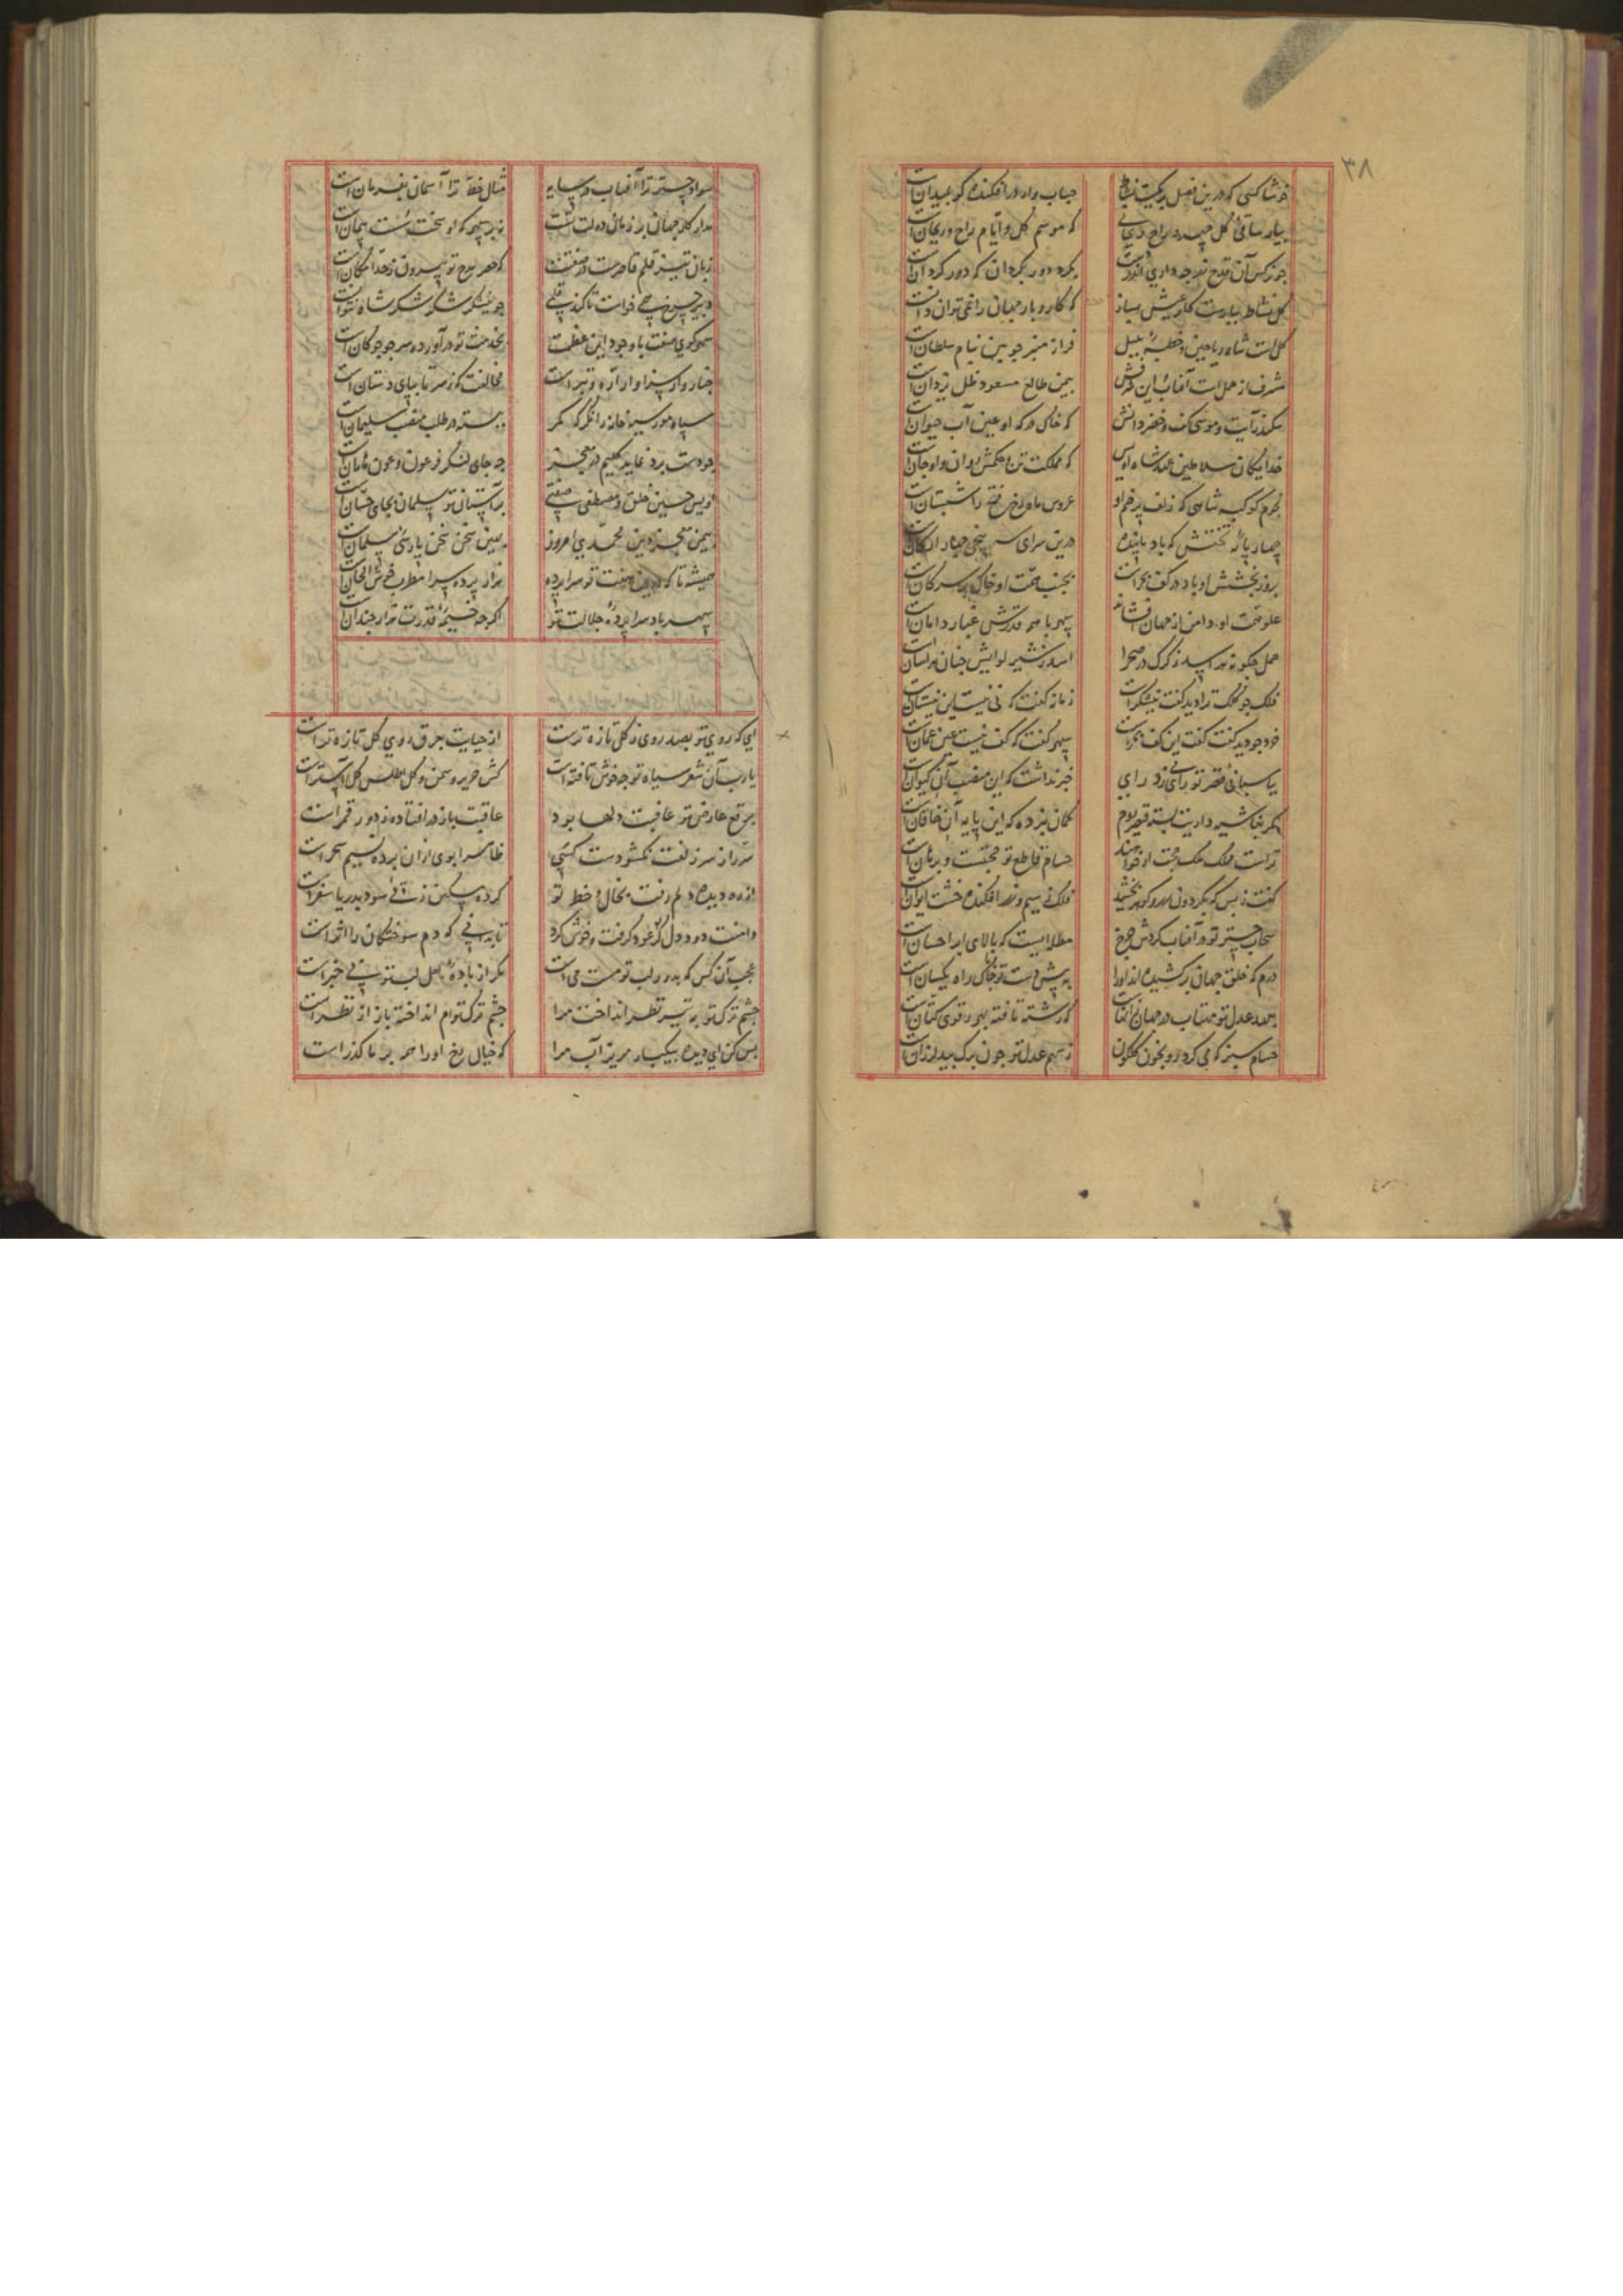 ۳۸
خوشا کسی که درین فصل بر بساط نشاط حباب وار در افکنده گوی میدان است
بیار ساقی گل چهره راح ریحانی که موسم گل و ایام راح و ریحان است
چو نرکس آن قدح زر چه داری اندر دست بکرد دور بکردان که دور کردان است
کل نشاط ببارست کار عیش بساز که کار و بار جهان را نمی توان دانست
کل است شاه ریاحین و خطبه بلبل فراز منبر چوبین بنام سلطان است
مشرف از حمل است آفتاب این بیمن طالع مسعود ظل یزدان است
سکندر آیت و موسی کف و خضر دانش که خاک درکه او عین آب حیوان است
خدایکان سلاطین عهد شاه اویس که مملکت تن و حکمش روان و او جان است
نجوم کوکبه شاهی که زلف پرچم او عروس ماه رخ فتح را شبستان است
چهار پایه تختش که باد پاینده درین سرای سپنجی چهار ارکان است
بروز بخشش او باد در کف بحر است بجنب همت او خاک بر سر کان است
علو همت او دامن از جهان افشاند سپهر با همه قدرش غبار دامان است
حمل چگونه نه اسد ز کرک در صحرا اسد ز شیر لوایش چنان هراسان است
فلک چو کلک ترا دید گفت نیشکر است زمانه گفت که نی نیست این نیستان است
خرد چو دید کفت گفت این کف بحر است سپهر گفت که کف نیست عین عمان است
بپاسبانی قصر تو رای زد رای خبر نداشت که این منصب آن کیوان است
مکر بغاشیه داریت بسته قیصر روم کمان نبرده که این پایه آن خاقان است
تراست ملک و ملک حجت ار خواهند حسام قاطع تو حجت و برهان است
کفت ز بس که بکردون زر و کوهر بخشید فلک ز سیم و زر افکنده خشت ایوان است
سحاب چتر تو در آفتاب کردش چرخ مظلهٔ ایست که بالای ابر احسان است
درم که خلق جهان برکشیده اند او را به پیش دست تو با خاک راه یکسان است
بعهد عدل تو مهتاب در جهان که رشته تافته بهر رفوی کتان است
حسام سبز که می کرد رو بخون گلکون ز سهم عدل تو چون برک بید لرزان است
سواد چتر ترا آفتاب در سایه مثال خط ترا آسمان بفرمان است
مدار کار جهان بر زمان دولت تست نه بر سپهر که او سخت سست پیمان است
زبان تیز قلم قاصرست در صفتت که حصر مدح تو بیرون ز حد امکان است
دبیر چرخ
سپهر کوی صفت با وجود این عظمت بخدمت تو در آورده سر چو چوکان است
چنار وار سزاوار اره و تبر است مخالفت که ز سر تا بپای دستان است
سیاه مور سیه خانه را نکر که کمر ببسته در طلب منصب سلیمان است
چو دست برد نماید کلیم در معجز چه جای لشکر فرعون و عون هامان است
اویس حسین خلق و مصطفی صفتی بر آستان تو سلمان بجای حسان است
بیمن معجز دین محمدی امروز ببین سخن سخن پارسی سلمان است
همیشه تا که هزار پرده سرا مطرب خوش الحان است
سپهر باد سراپردهٔ جلالت تو اگرچه خیمهٔ قدرت هزار چندان است
ای که روی تو بصد روی ز کل تازه ترست از حیایت بعرق روی کل تازه تر است
یا رب آن شعر سیاه تو چه خوش تافته است کش حریر و سمن و کل اطلس کل آستر است
برقع عارض تو عافیت دلها بود عاقبت باز در افتاده ز دور قمر است
سر از سر زلفت نکشودست کسی ظاهرا بوی از آن برده نسیم سحر است
از ره دیده دلم رفت بخال و خط تو کرده مسکین ز تری سود بدریا سفر است
دامنت دود دل عود کرفت و خوش کرد تا بدانی که دم سوختکان را اثر است
عجب آن کس که بدور لب تو مست می است مکر از بادهٔ لعل لب تو بی خبر است
چشم ترک تو به تیر نظر انداخت مرا چشم ترک توام انداخته باز از نظر است
بس کن ای دیده بیکبار مریز آب مرا که خیال رخ او را همه بر ما گذر است